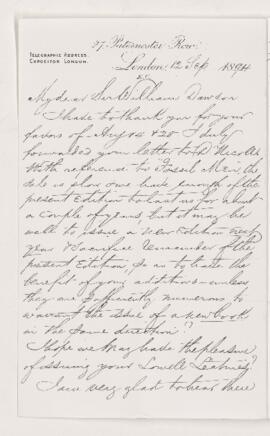 27, Paternoster Row,
TELEGRAPHIC ADDRESS,
EXPOSITOR LONDON.
London, 12 Sep 1894
My dear Sir William Dawson
I have to thank you for your
favors of Aug 14 & 28. I duly
forwarded your letter to Dr Nicoll.
With reference to Fossil Men, the
sale is slow and we have enough of the
present Edition to last us for about
a couple of years. But it may be
well to issue a new Edition next
year & sacrifice remainder of the
present Edition, so as to have the
benefit of your additions — unless
they are sufficiently numerous to
warrant the issue of a new book
in the same direction?
I hope we may have the pleasure
of issuing your Lowell Lectures?
I am very glad to hear there